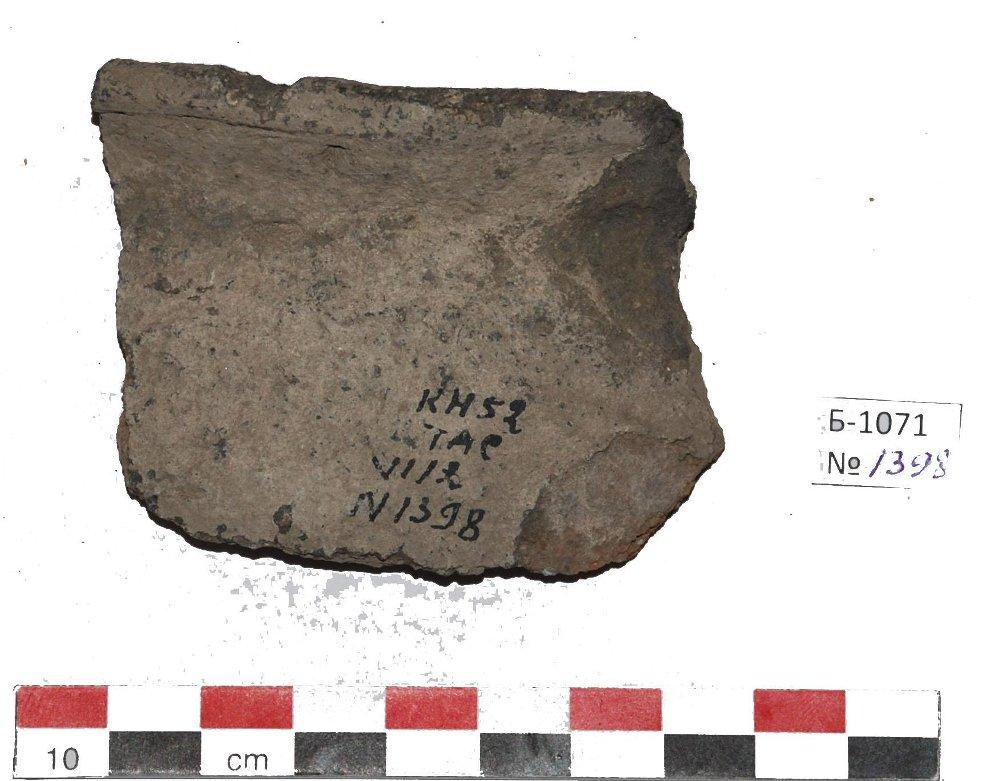 КН52
ТАС
VIIIR
N1398
Б-1071
№ 1398
10 cm